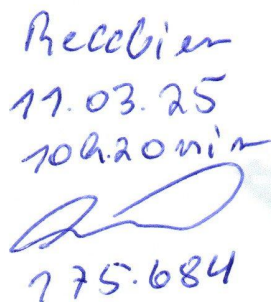 Recebi em
11.03.25
10h20min
175.684